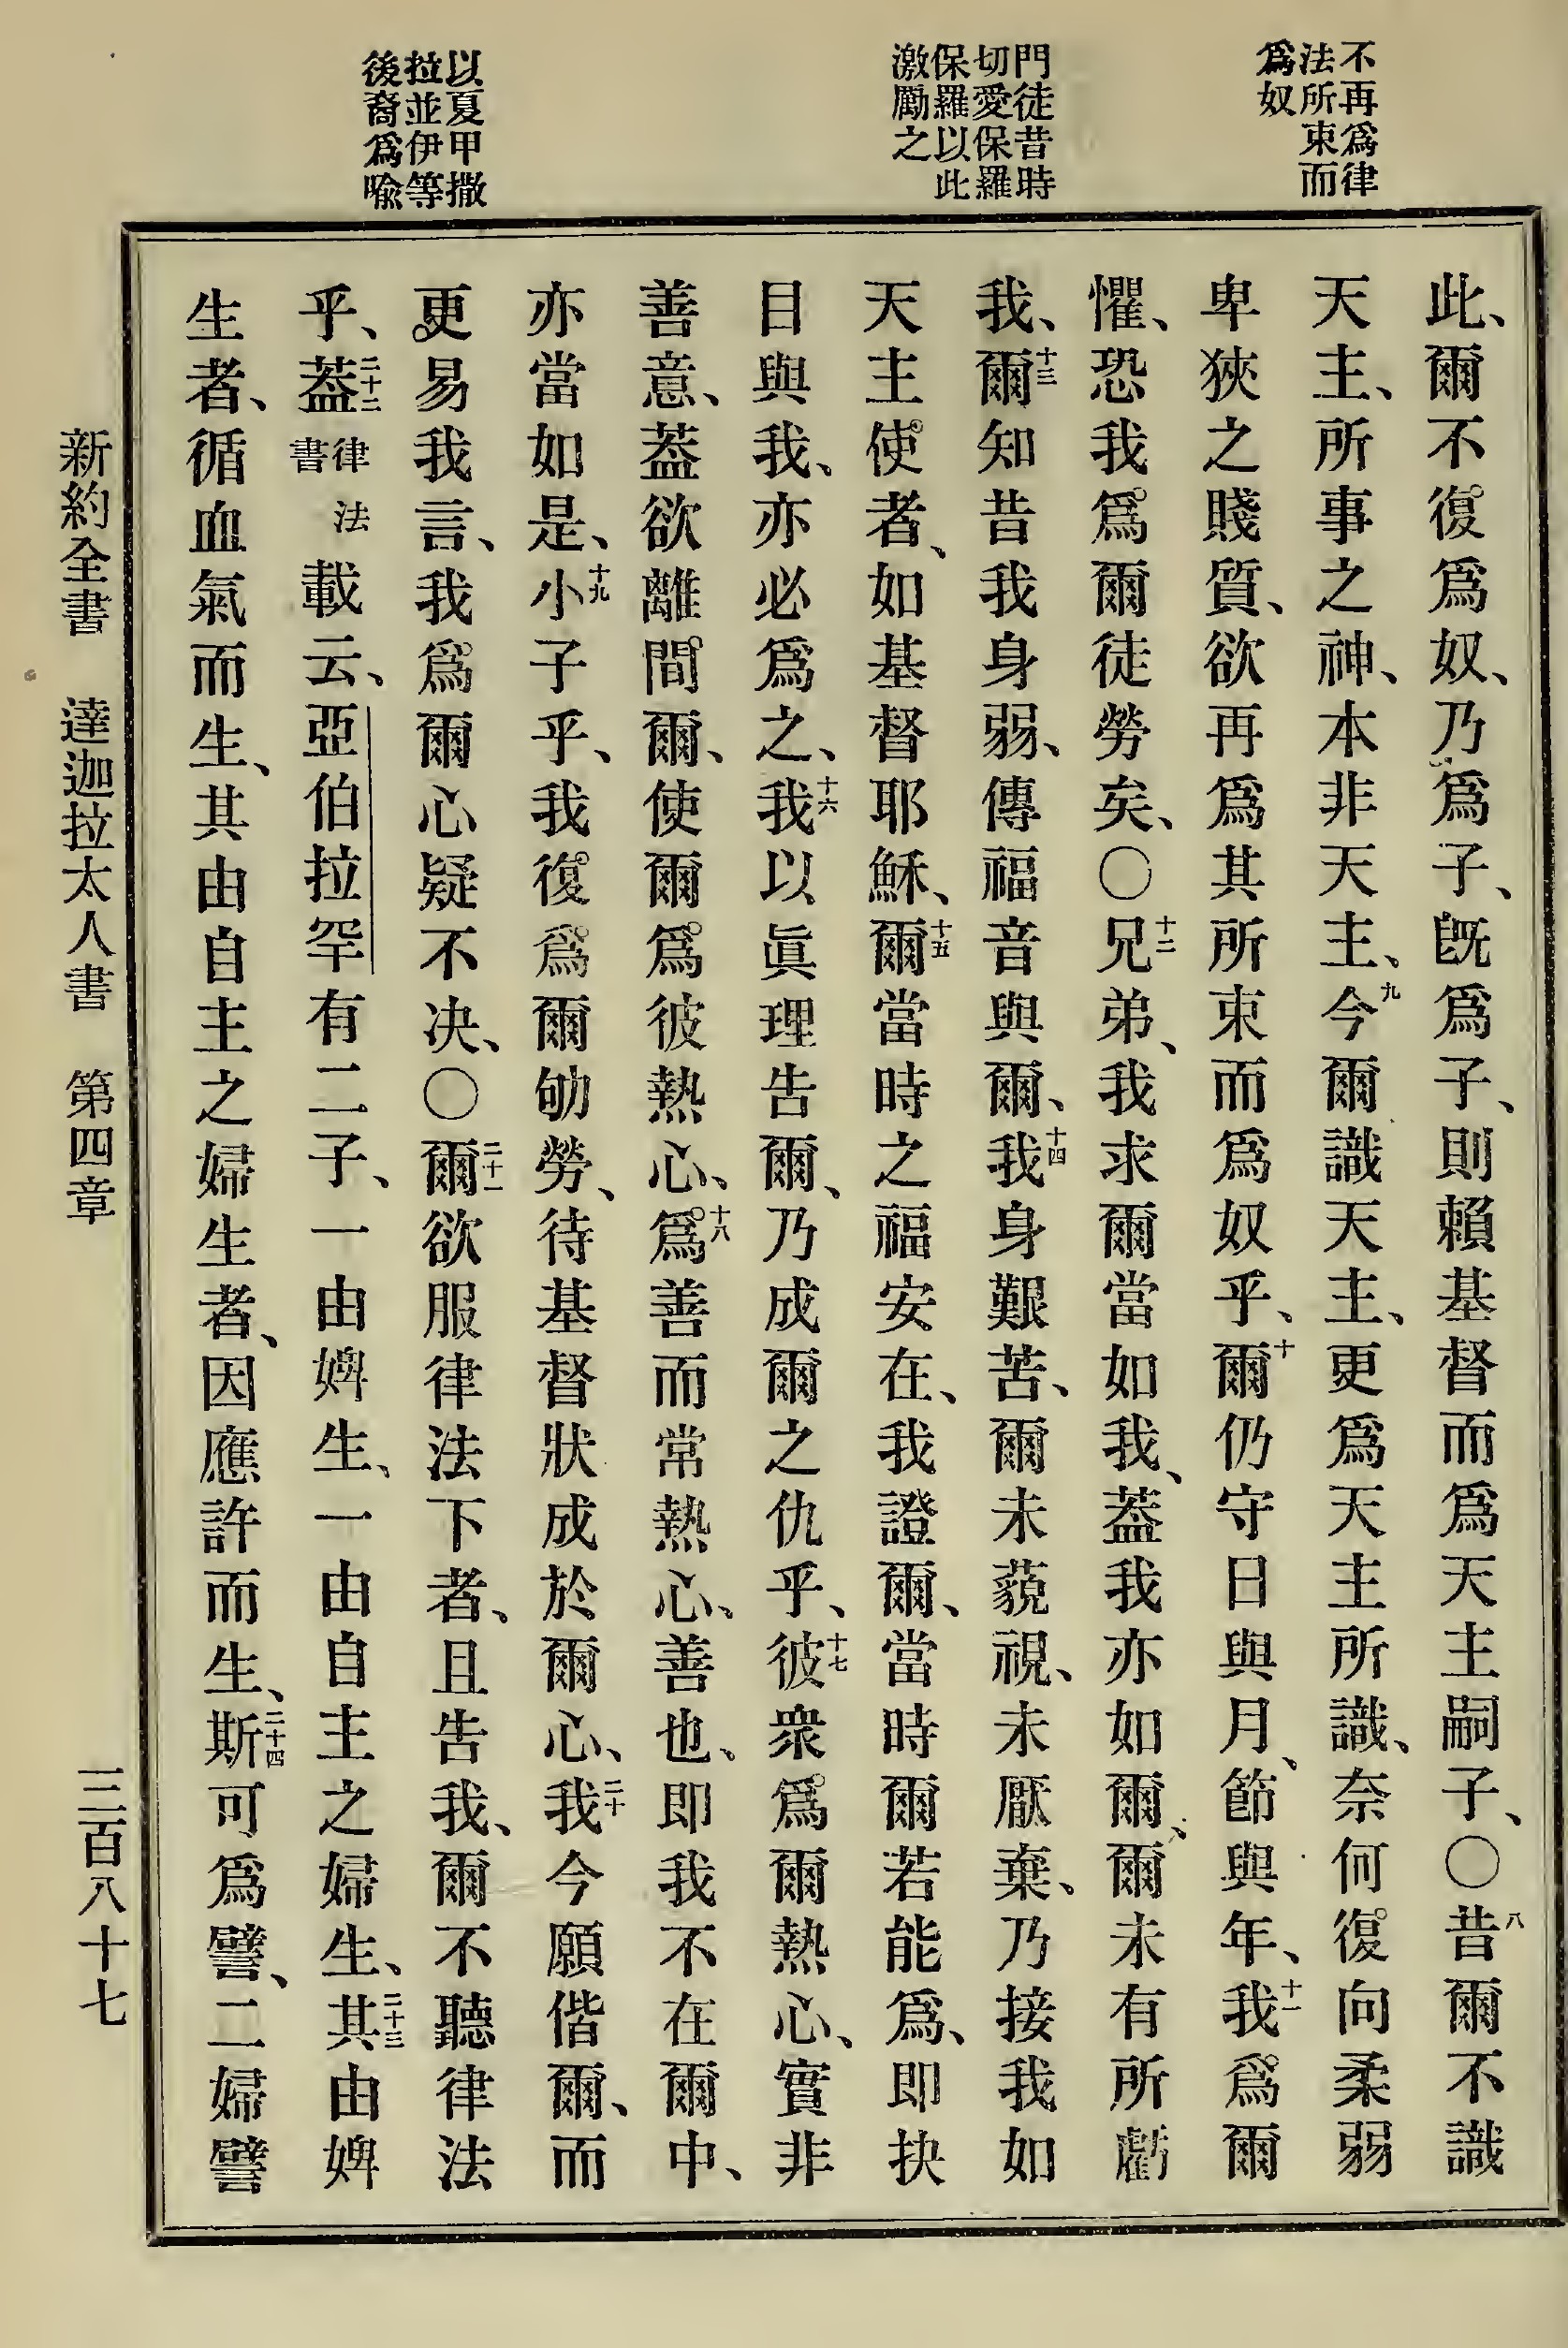 不再爲律
法所束而
爲奴
門徒昔時
切愛保羅
保羅以此
激勵之
以夏甲撒
拉並伊等
後裔爲喻
此、爾不復爲奴、乃爲子、既爲子、則賴基督而爲天主嗣子、〇八昔爾不識
天主、所事之神、本非天主、九今爾識天主、更爲天主所識、奈何復向柔弱
卑狹之賤質、欲再爲其所束而爲奴乎、十爾仍守日與月、節與年、十一我爲爾
懼、恐我爲爾徒勞矣、〇十二兄弟、我求爾當如我、蓋我亦如爾、爾未有所虧
我、十三爾知昔我身弱、傳福音與爾、十四我身艱苦、爾未藐視、未厭棄、乃接我如
天主使者、如基督耶穌、十五爾當時之福安在、我證爾、當時爾若能爲、即抉
目與我、亦必爲之、十六我以眞理告爾、乃成爾之仇乎、十七彼衆爲爾熱心、實非
善意、蓋欲離間爾、使爾爲彼熱心、十八爲善而常熱心、善也、即我不在爾中、
亦當如是、十九小子乎、我復爲爾劬勞、待基督狀成於爾心、二十我今願偕爾、而
更易我言、我爲爾心疑不決、〇二十一爾欲服律法下者、且告我、爾不聽律法
乎、二十二蓋律法書載云、亞伯拉罕有二子、一由婢生、一由自主之婦生、二十三其由婢
生者、循血氣而生、其由自主之婦生者、因應許而生、二十四斯可爲譬、二婦譬
新約全書 達迦拉太人書 第四章 三百八十七